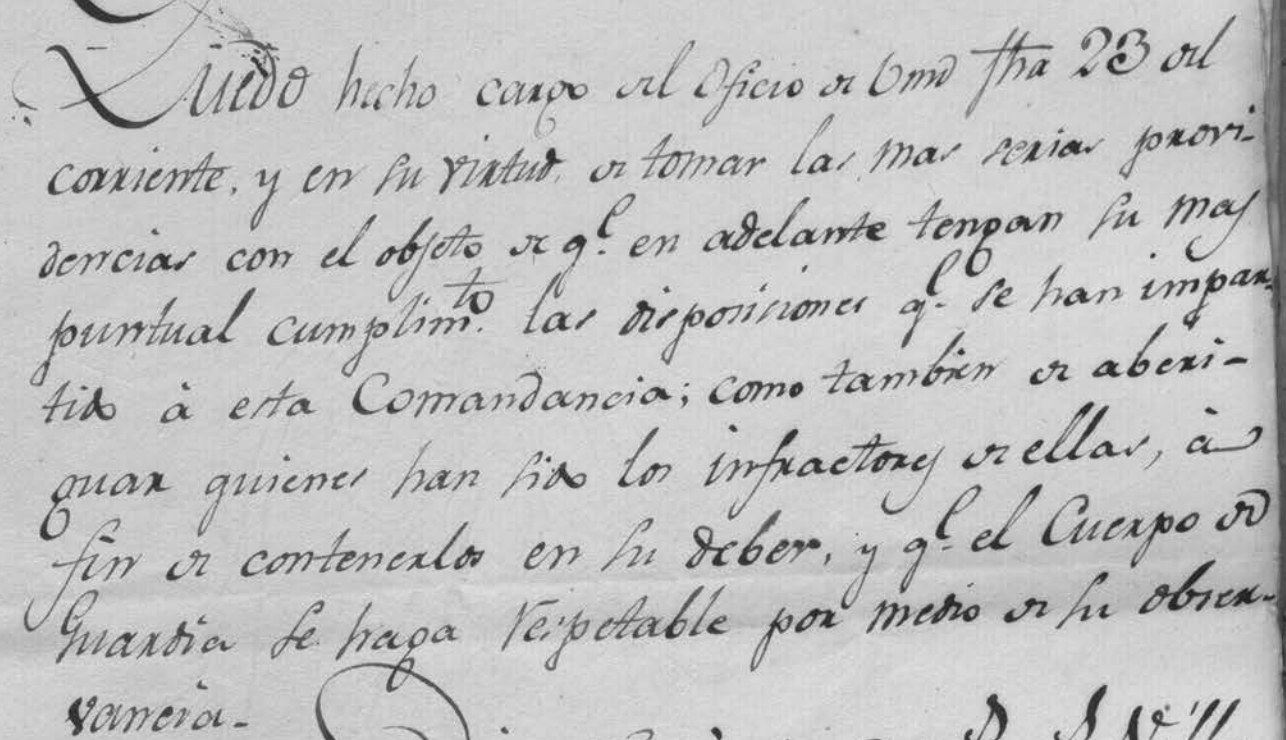 Quedo hecho cargo del Oficio de Vmd fha 23 del
corriente, y en su virtud, de tomar las mas serias provi-
dencias con el objeto de q.e en adelante tengan su mas
puntual cumplim.to las disposiciones q.e se han impar-
tido à esta Comandancia; como tambien de aberi-
guar quienes han sido los infractores de ellas, à
fin de contenerlos en su deber, y q.e el Cuerpo de
Guardia se haga respetable por medio de su obser-
vancia.